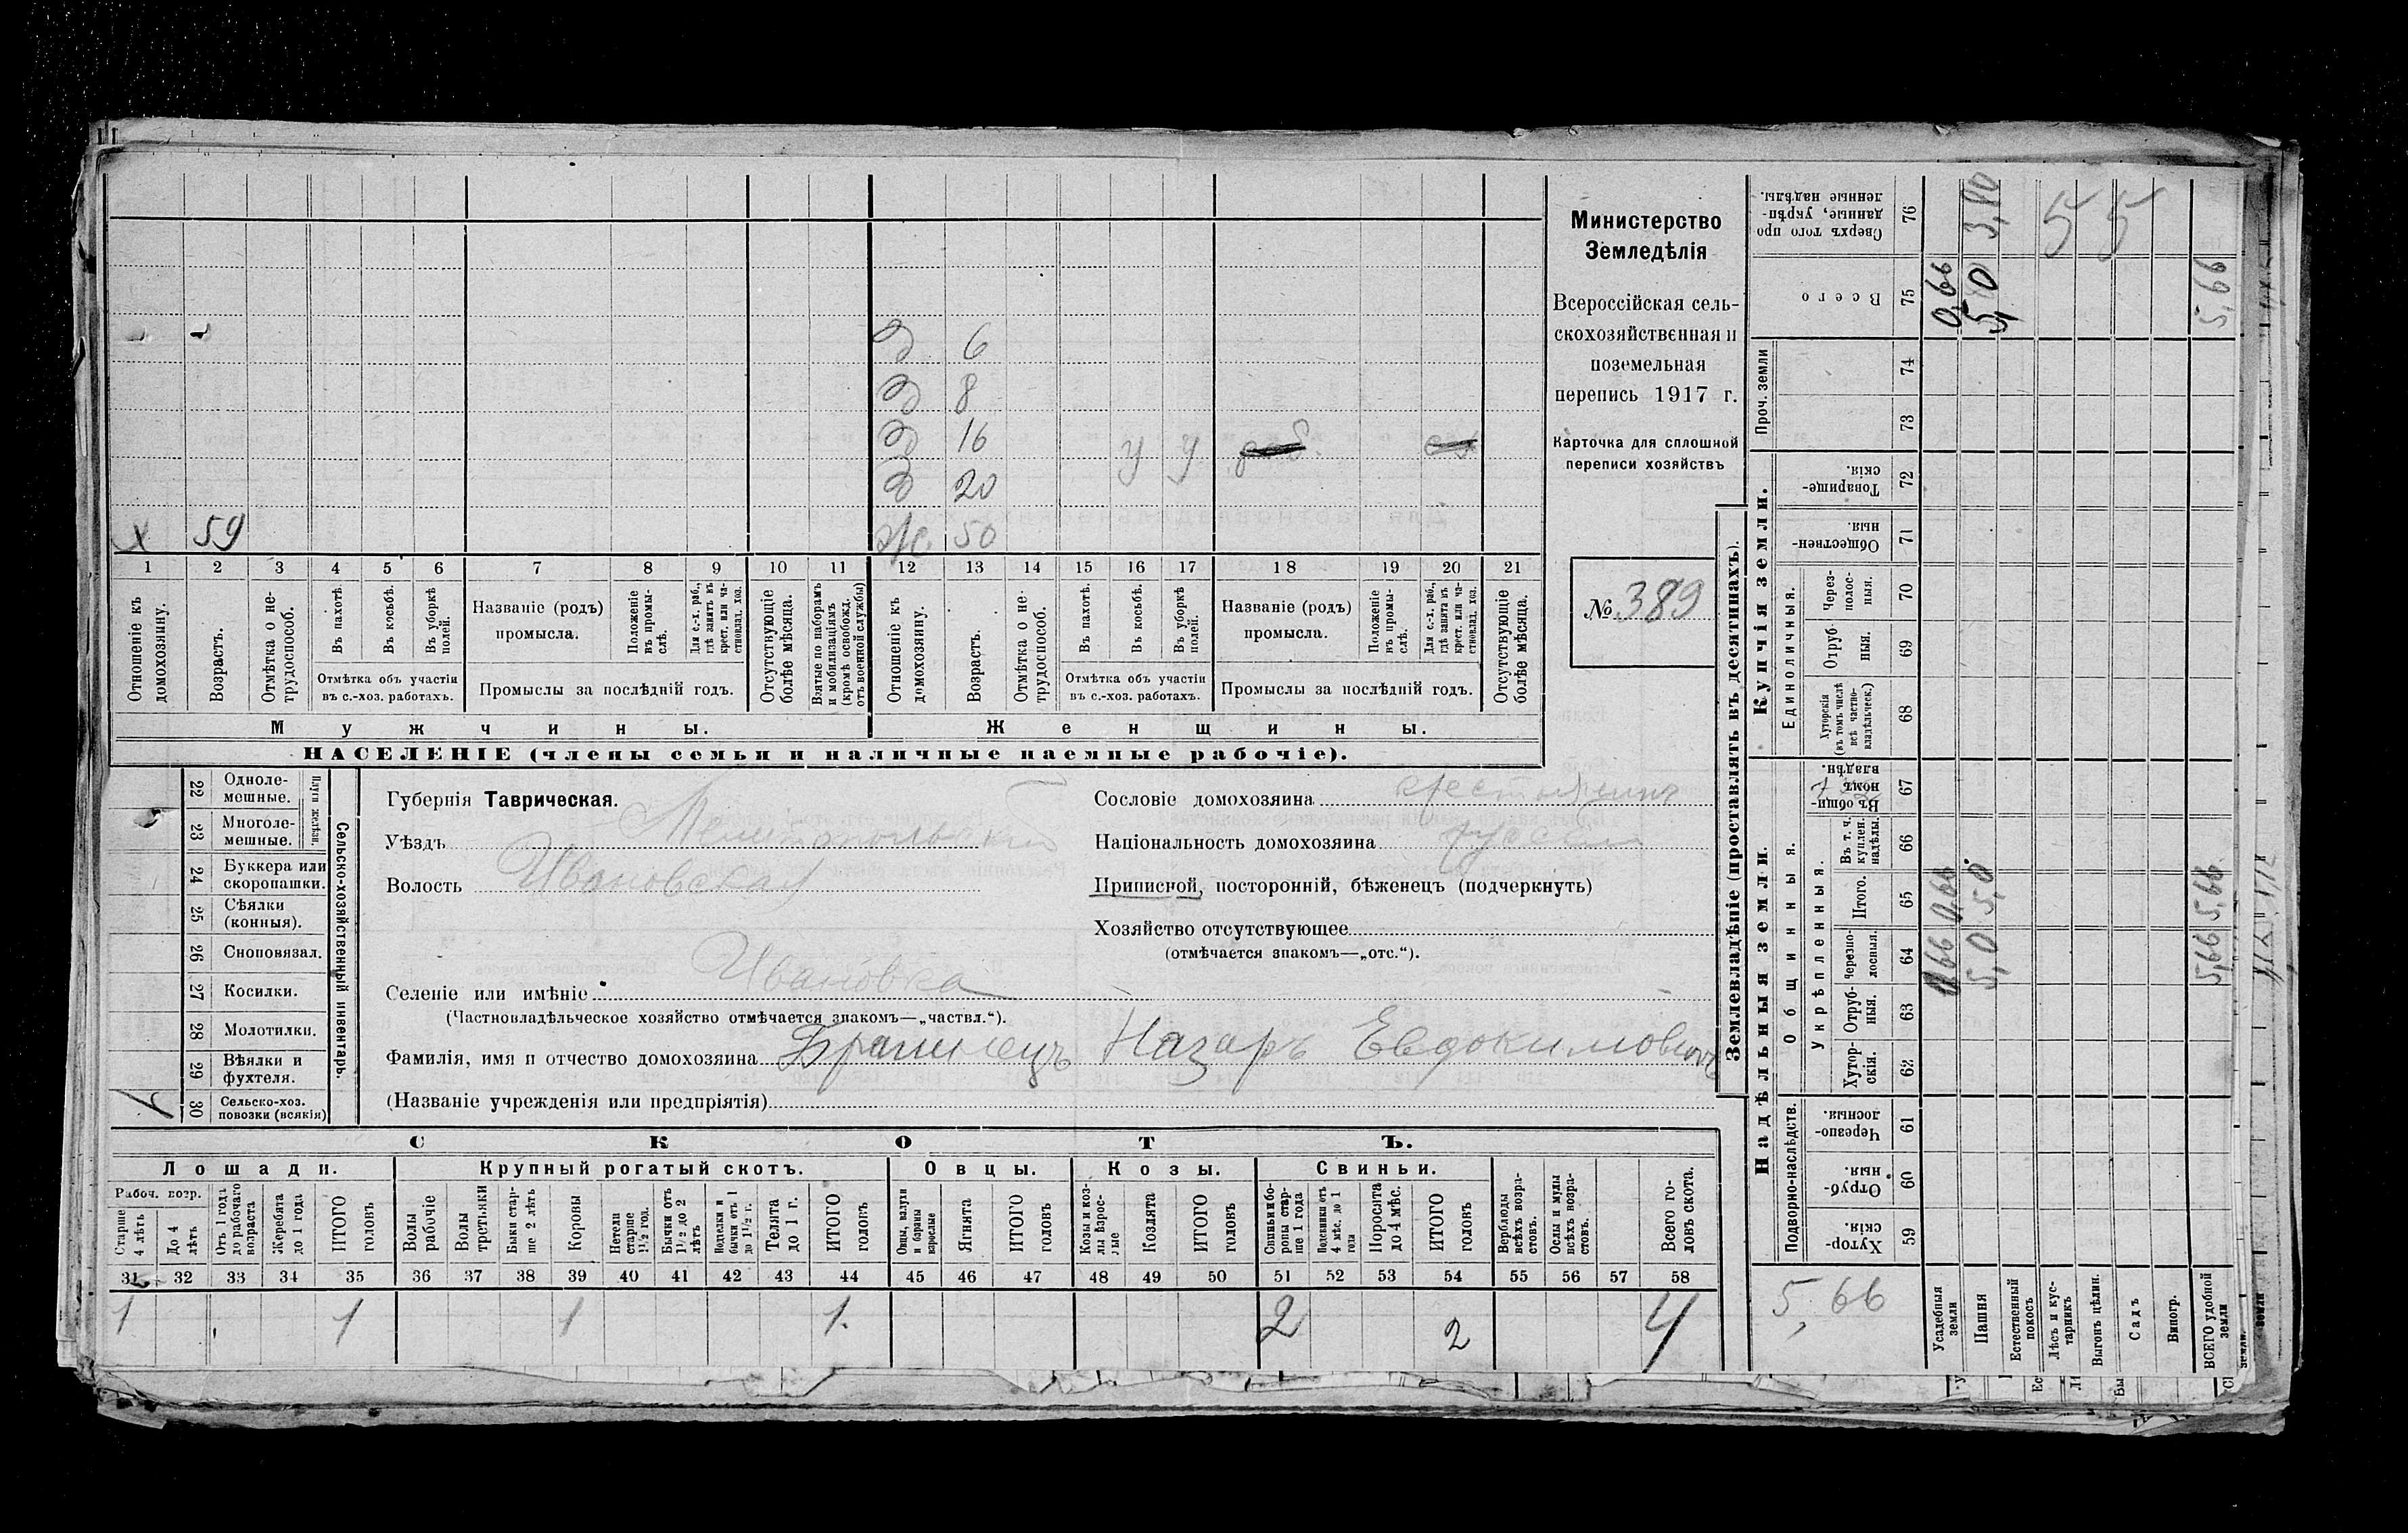 Министерство
Земледѣлія
Всероссійская сель-
скохозяйственная и
поземельная
перепись 1917 г.
Карточка для сплошной
переписи хозяйствъ
№ 389
Д 6
Д 8
Д 16 У У
Д 20
Х 59 Ж 50
1 2 3 4 5 6 7 8 9 10 11 12 13 14 15 16 17 18 19 20 21
Отношеніе къ домохозяину.
Возрастъ.
Отмѣтка о не-трудоспособ.
Въ пахотѣ.
Въ косьбѣ.
Въ уборкѣ полей.
Отмѣтка объ участіи
въ с.-хоз. работахъ.
Названіе (родъ)
промысла.
Положеніе въ промы-слѣ.
Для с.-х. раб., гдѣ занятъ въ крест. или ча-стновлад. хоз.
Промыслы за послѣдній годъ.
Отсутствующіе болѣе мѣсяца.
Взятые по наборамъ и мобилизаціямъ (кромѣ освобожд. отъ военной службы)
Отношеніе къ домохозяину.
Возрастъ.
Отмѣтка о не-трудоспособ.
Въ пахотѣ.
Въ косьбѣ.
Въ уборкѣ полей.
Отмѣтка объ участіи
въ с.-хоз. работахъ.
Названіе (родъ)
промысла.
Положеніе въ промы-слѣ.
Для с.-х. раб., гдѣ занята въ крест. или ча-стновлад. хоз.
Промыслы за послѣдній годъ.
Отсутствующіе болѣе мѣсяца.
Мужчины. Женщины.
НАСЕЛЕНІЕ (члены семьи и наличные наемные рабочіе).
Сельско-хозяйственный инвентарь.
Плуги желѣзн.
22 Одноле-
мешные.
23 Многоле-
мешные.
24 Буккера или
скоропашки.
25 Сѣялки
(конныя).
26 Сноповязал.
27 Косилки.
28 Молотилки.
29 Вѣялки и
фухтеля.
30 Сельско-хоз.
повозки (всякія)
Губернія Таврическая.
Уѣздъ Мелитопольскій
Волость Ивановская
Селеніе или имѣніе Ивановка
(Частновладѣльческое хозяйство отмѣчается знакомъ—„частвл.“).
Сословіе домохозяина крестьянинъ
Національность домохозяина русскій
Приписной, посторонній, бѣженецъ (подчеркнуть)
Хозяйство отсутствующее
(отмѣчается знакомъ—„отс.“).
Фамилія, имя и отчество домохозяина Назаръ Евдокимовичъ
(Названіе учрежденія или предпріятія)
СКОТЪ.
Лошади. Крупный рогатый скотъ. Овцы. Козы. Свиньи.
Рабоч. возр.
Старше 4 лѣтъ
До 4 лѣтъ
Отъ 1 года до рабочаго возраста
Жеребята до 1 года
ИТОГО головъ
Волы рабочіе
Волы третьяки
Быки стар-ше 2 лѣтъ
Коровы
Нетели старше 1½ год.
Бычки отъ 1½ до 2 лѣтъ
Телята до 1 г.
ИТОГО головъ
Овцы, валухи и бараны взрослые
Ягнята
ИТОГО головъ
Козы и коз-лы взрос-лые
Козлята
ИТОГО головъ
Свиньи и бо-ровы стар-ше 1 года
Подсвинки отъ 4 мѣс. до 1 года
Поросята до 4 мѣс.
ИТОГО головъ
Верблюды всѣхъ возра-стовъ.
Ослы и мулы всѣхъ возра-стовъ.
Всего го-ловъ скота.
31 32 33 34 35 36 37 38 39 40 41 42 43 44 45 46 47 48 49 50 51 52 53 54 55 56 57 58
1 1 1 1. 2 2 4
Землевладѣніе (проставлять въ десятинахъ).
Надѣльныя земли. Купчія земли. Проч. земли
Подворно-наслѣдств. Общинныя. Укрѣпленныя. Единоличныя.
59 Хутор-скія.
60 Отруб-ныя.
61 Черезпо-лосныя.
62 Хутор-скія.
63 Отруб-ныя.
64 Черезпо-лосныя.
65 Итого.
66 Въ т. ч. куплен. надѣлы.
67 Въ общи-номъ владѣн.
68 Хуторскія (въ томъ числѣ всѣ частно-владѣльческ.)
69 Отруб-ныя.
70 Через-полос-ныя.
71 Обществен-ныя.
72 Товарище-скія.
73
74
75 Всего
76 Сверхъ того про-данные, укрѣп-ленные надѣлы.
5,66
Усадебныя земли 0,66 0,66 0,66
Пашня 5,0 5,0 5,0
Естественный покосъ
Лѣсъ и кус-тарникъ
Выгонъ цѣлин.
Садъ
Виногр.
ВСЕГО удобной земли 5,66 5,66 5,66